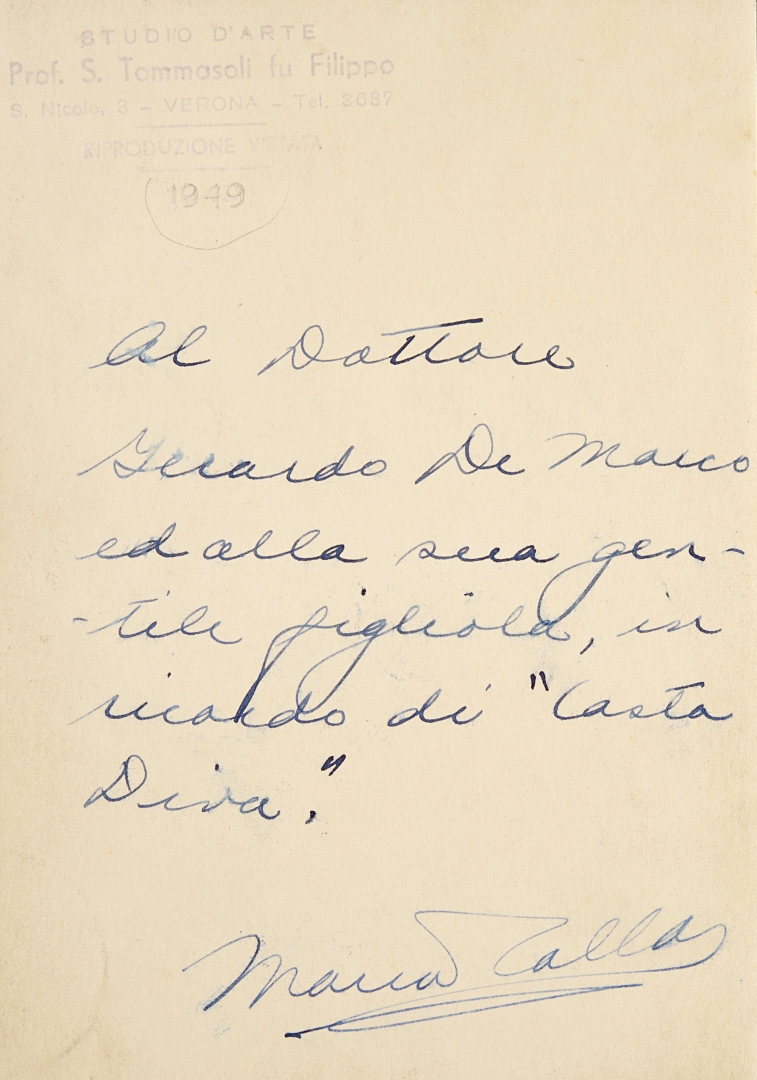 STUDIO D'ARTE
Prof. S. Tommasoli fu Filippo
S. Nicolo, 3 - VERONA - Tel. 3687
RIPRODUZIONE VIETATA
1949
Al Dottore
Gerardo De Marco
ed alla sua gen-
-tile figliola, in
ricordo di "Casta
Diva."
Maria Callas